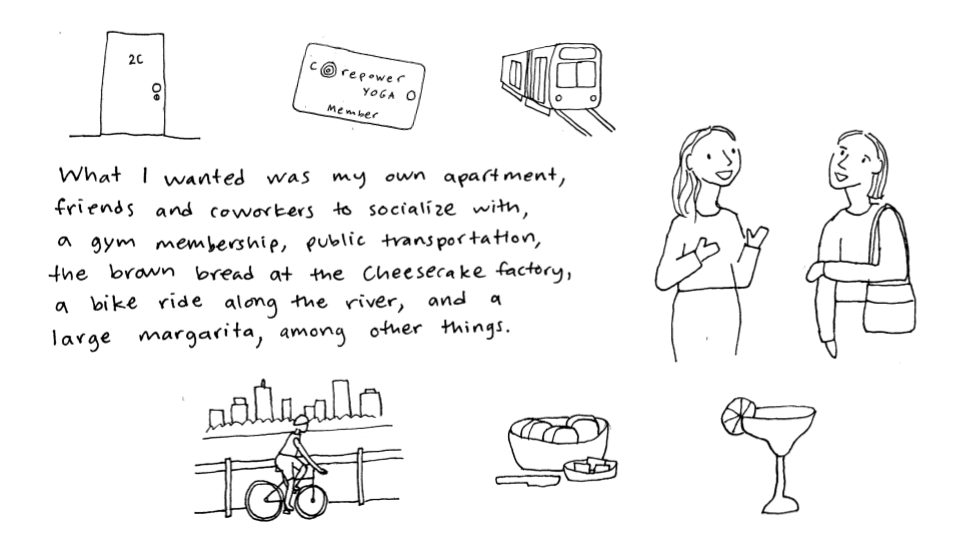 2C
C@repower
YOGA
Member
What I wanted was my own apartment,
friends and coworkers to socialize with,
a gym membership, public transportation,
the brown bread at the Cheesecake factory,
a bike ride along the river, and a
large margarita, among other things.